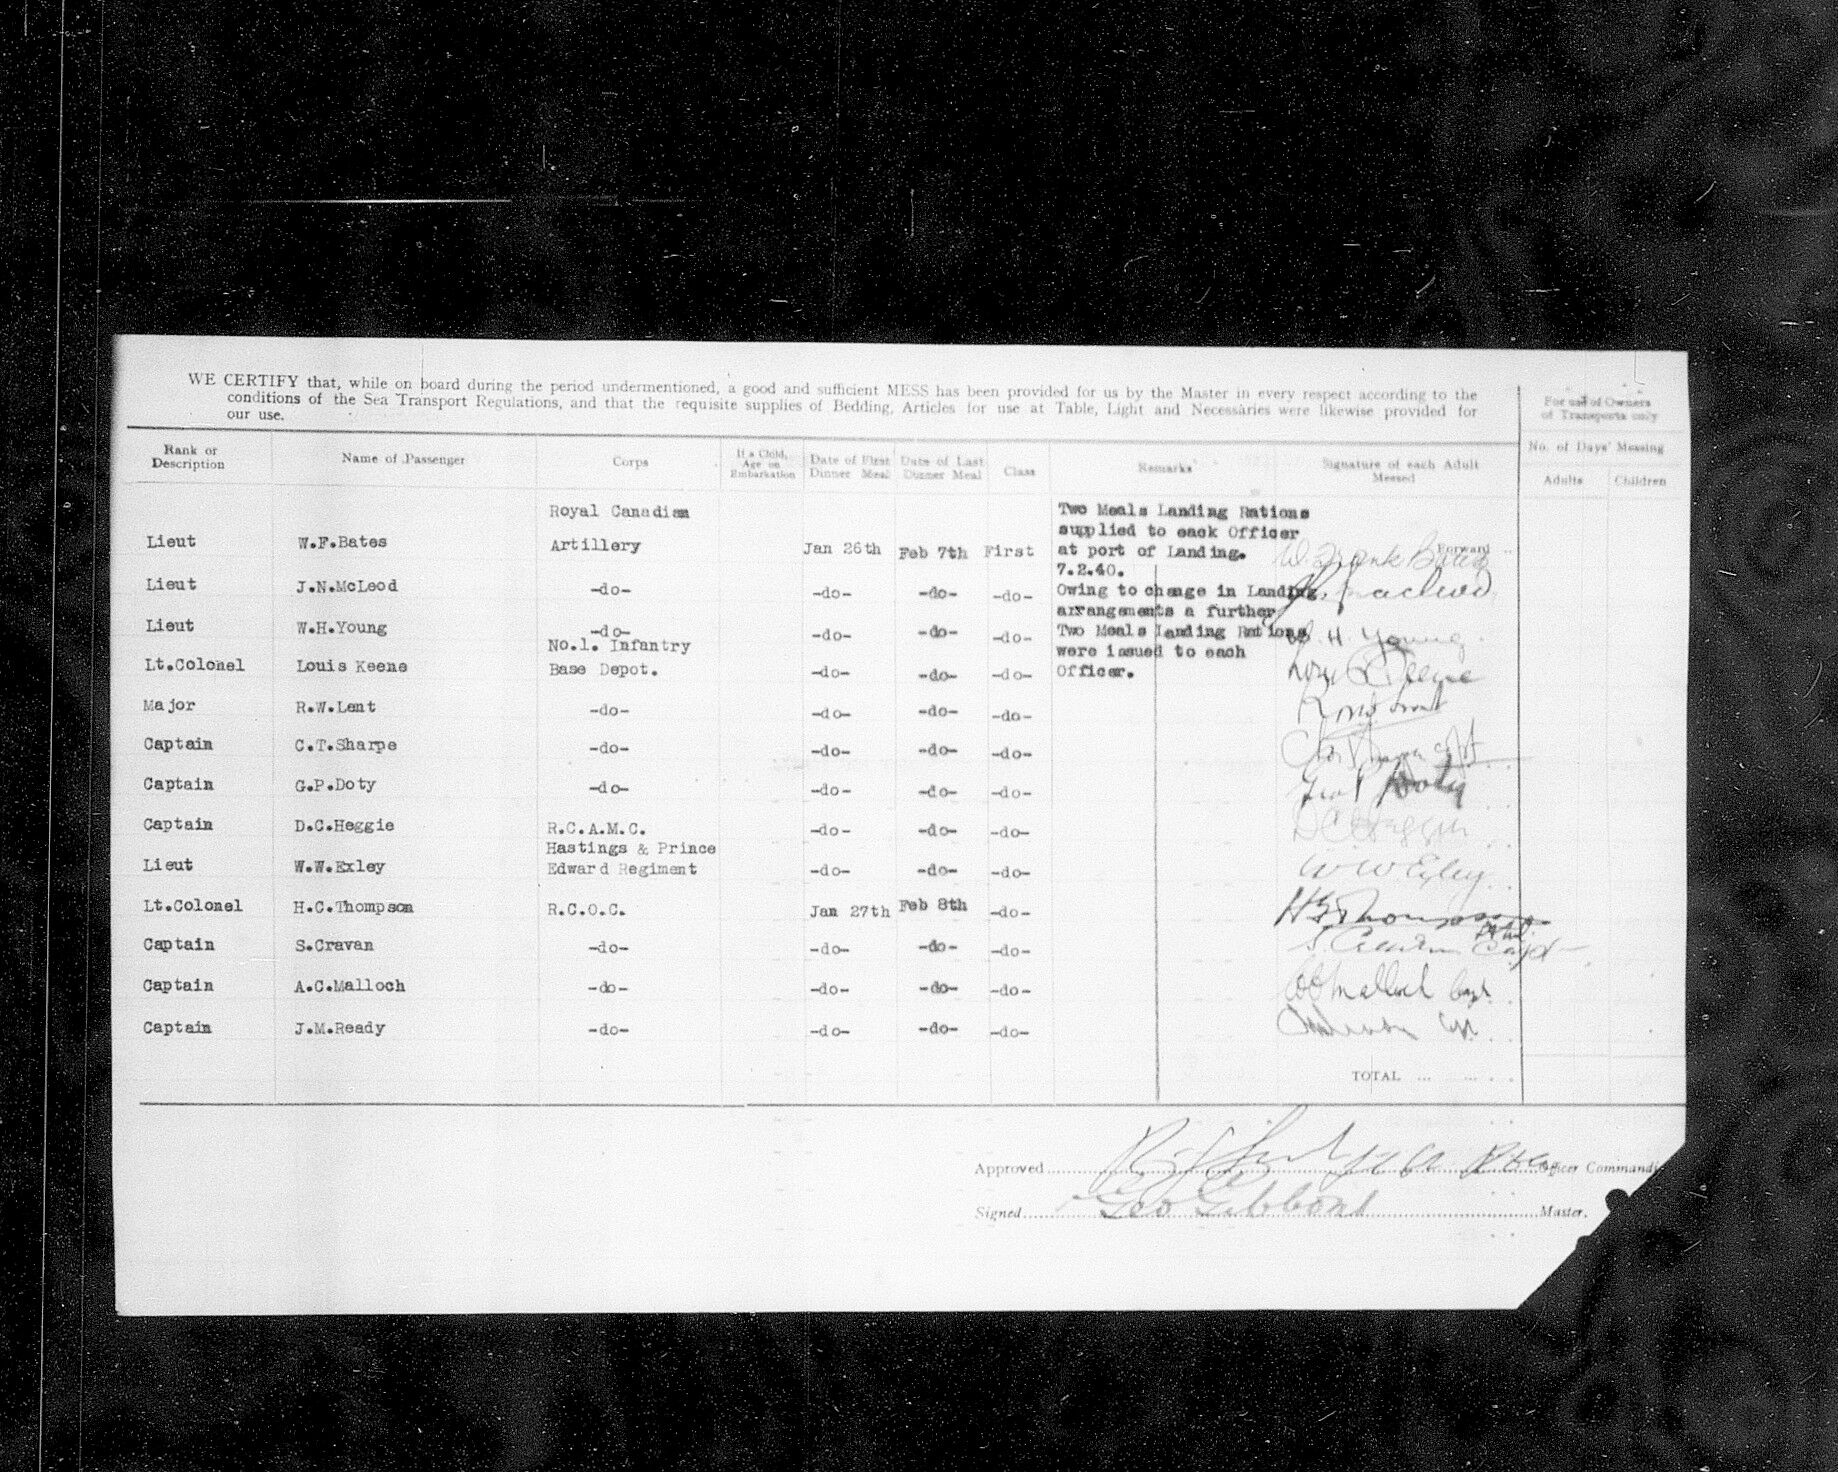 WE CERTIFY that, while on board during the period undermentioned, a good and sufficient MESS has been provided for us by the Master in every respect according to the
conditions of the Sea Transport Regulations, and that the requisite supplies of Bedding, Articles for use at Table, Light and Necessaries were likewise provided for
our use.
For use of Owners
of Transports only
Rank or
Description
Name of Passenger
Corps
If a Child,
Age on
Embarkation
Date of First
Dinner Meal
Date of Last
Dinner Meal
Class
Remarks
Signature of each Adult
Messed
No. of Days' Messing
Adults Children
Forward ..
Royal Canadian
Lieut W.F.Bates Artillery Jan 26th Feb 7th First W. Frank Bates
Two Meals Landing Rations
supplied to each Officer
at port of Landing.
7.2.40.
Owing to change in Landing
arrangements a further
Two Meals Landing Rations
were issued to each
Officer.
Lieut J.N.McLeod -do- -do- -do- -do- Macleod
Lieut W.H.Young -do- -do- -do- -do- W. H. Young
No.1. Infantry
Lt.Colonel Louis Keene Base Depot. -do- -do- -do- Louis Keene
Major R.W.Lent -do- -do- -do- -do-
Captain C.T.Sharpe -do- -do- -do- -do-
Captain G.P.Doty -do- -do- -do- -do- Geo P Doty
Captain D.C.Heggie R.C.A.M.C. -do- -do- -do- DC Heggie
Hastings & Prince
Lieut W.W.Exley Edward Regiment -do- -do- -do- W.W. Exley
Lt.Colonel H.C.Thompson R.C.O.C. Jan 27th Feb 8th -do- Thompson
Captain S.Cravan -do- -do- -do- -do- S. Capt
Captain A.C.Malloch -do- -do- -do- -do- Malloch Capt.
Captain J.M.Ready -do- -do- -do- -do- Capt.
TOTAL ... ... . .
Approved Officer Commandi
Signed Geo Gibbons Master.